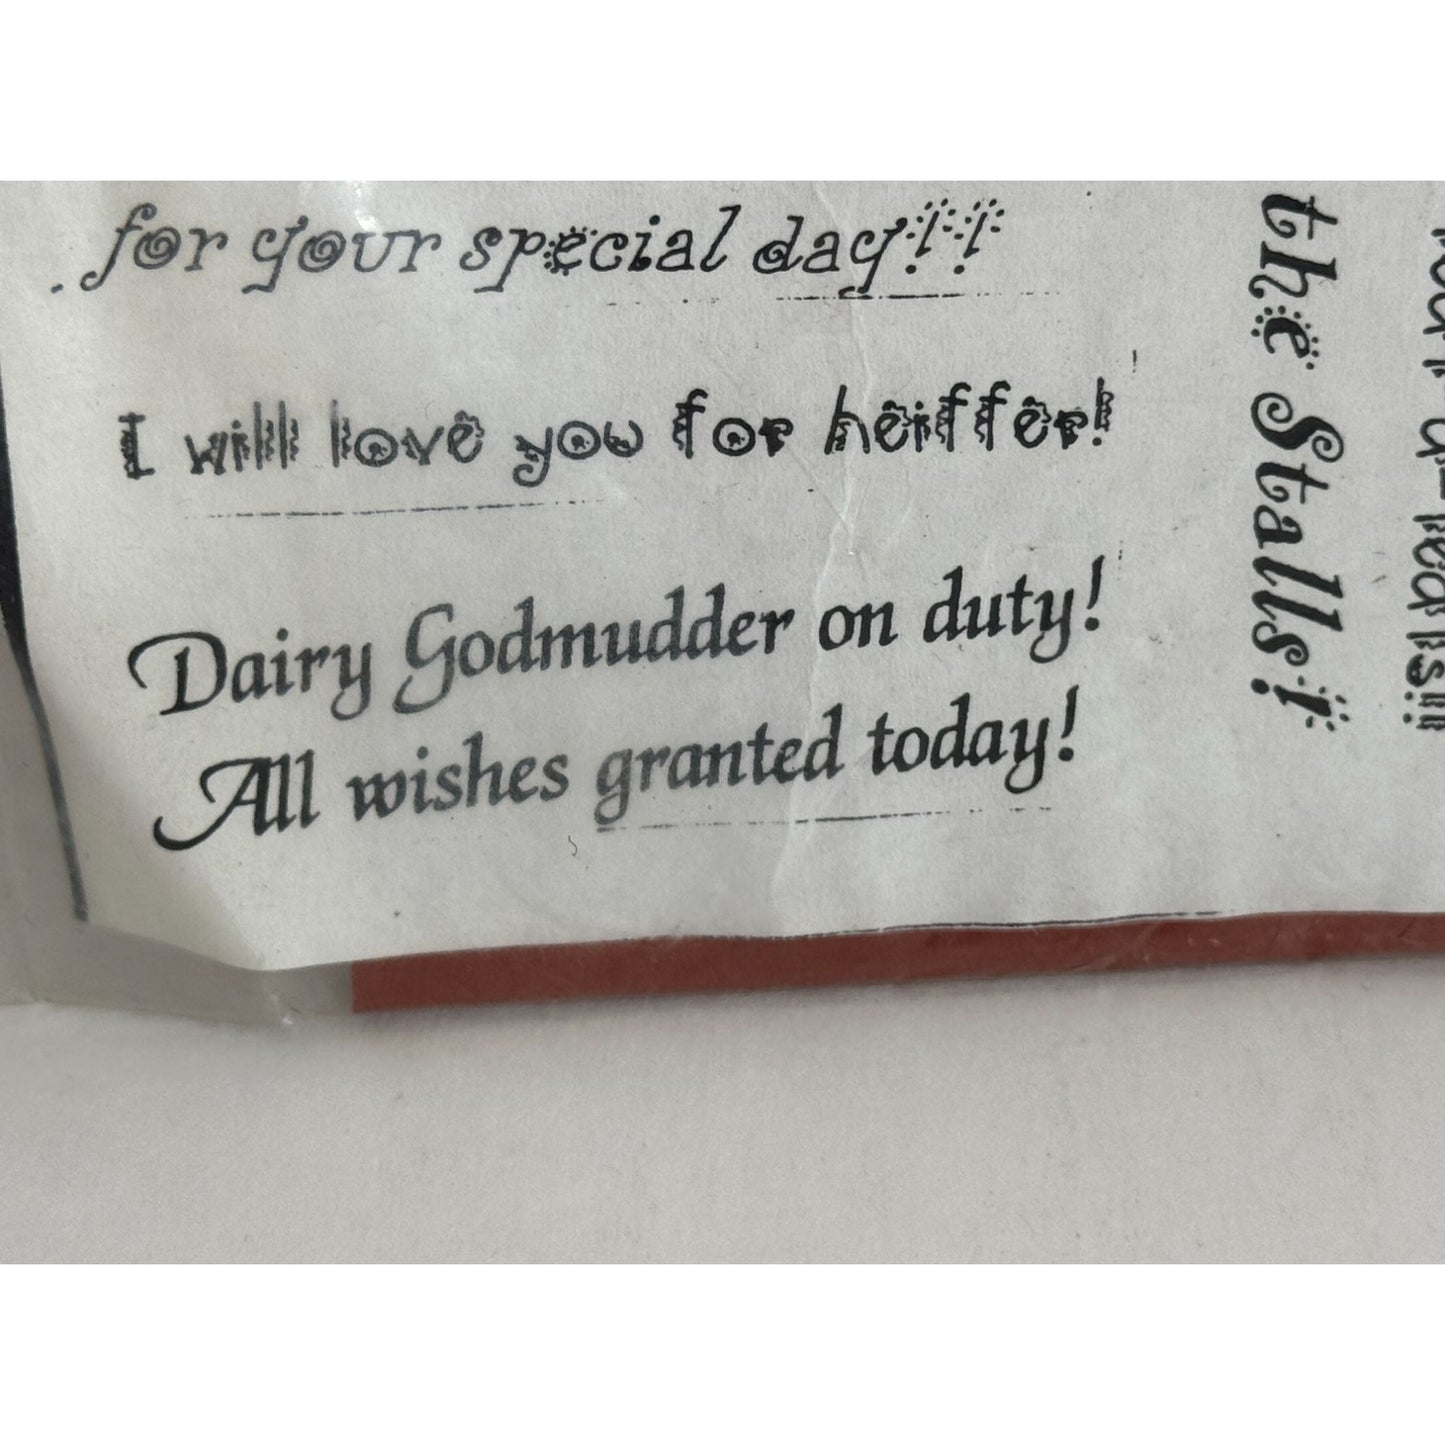 for your special day!!
I will love you for heiffer!
Dairy Godmudder on duty!
All wishes granted today!
the Stalls!